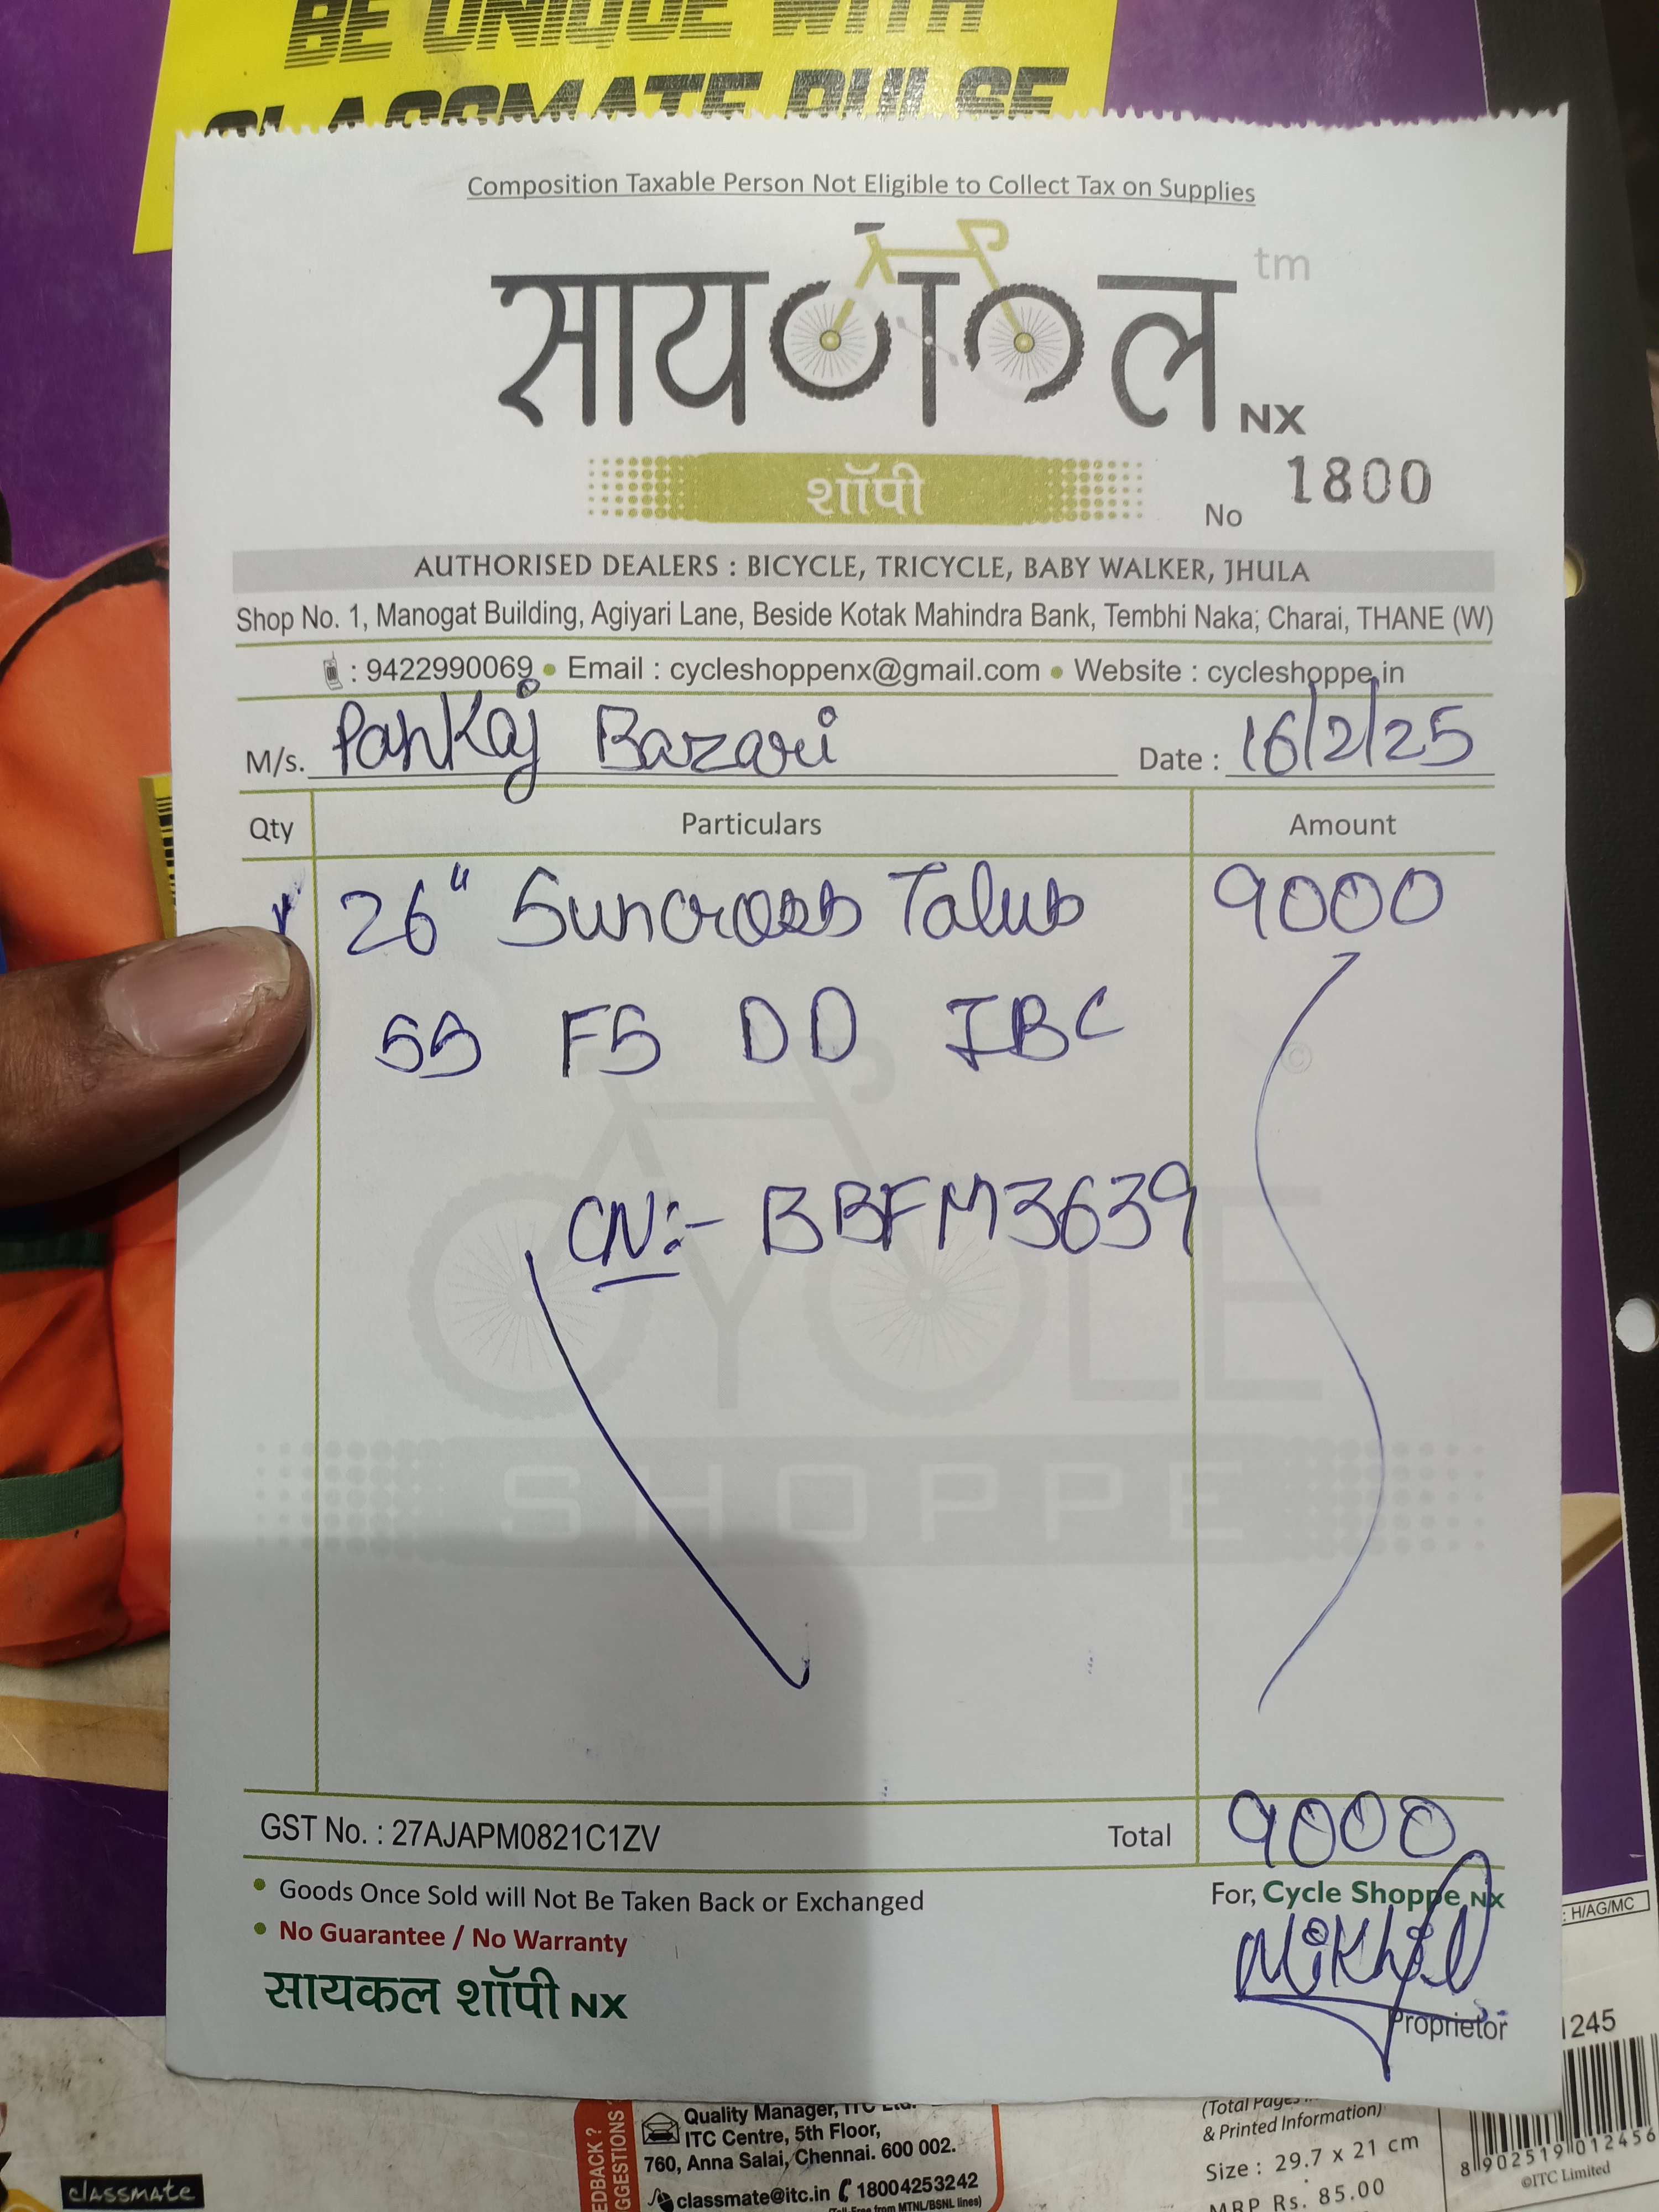 BE UNIQUE WITH
CLASSMATE PULSE
Composition Taxable Person Not Eligible to Collect Tax on Supplies
सायकल tm
NX
शॉपी
No 1800
AUTHORISED DEALERS : BICYCLE, TRICYCLE, BABY WALKER, JHULA
Shop No. 1, Manogat Building, Agiyari Lane, Beside Kotak Mahindra Bank, Tembhi Naka; Charai, THANE (W)
: 9422990069 • Email : cycleshoppenx@gmail.com • Website : cycleshoppe.in
M/s. Pankaj Bazari Date : 16/2/25
Qty Particulars Amount
26" Suncross Talus 9000
SS FS DD IBC
©
CN:- BBFM3639
CYCLE
SHOPPE
GST No. : 27AJAPM0821C1ZV Total 9000
• Goods Once Sold will Not Be Taken Back or Exchanged
For, Cycle Shoppe NX
• No Guarantee / No Warranty
Nikhil
सायकल शॉपी NX
Proprietor
: H/AG/MC
1245
Quality Manager, ITC Ltd.
ITC Centre, 5th Floor,
760, Anna Salai, Chennai. 600 002.
classmate@itc.in 18004253242
(Toll-Free from MTNL/BSNL lines)
(Total Pages
& Printed Information)
Size : 29.7 x 21 cm
MRP Rs. 85.00
8 902519 012456
©ITC Limited
classmate